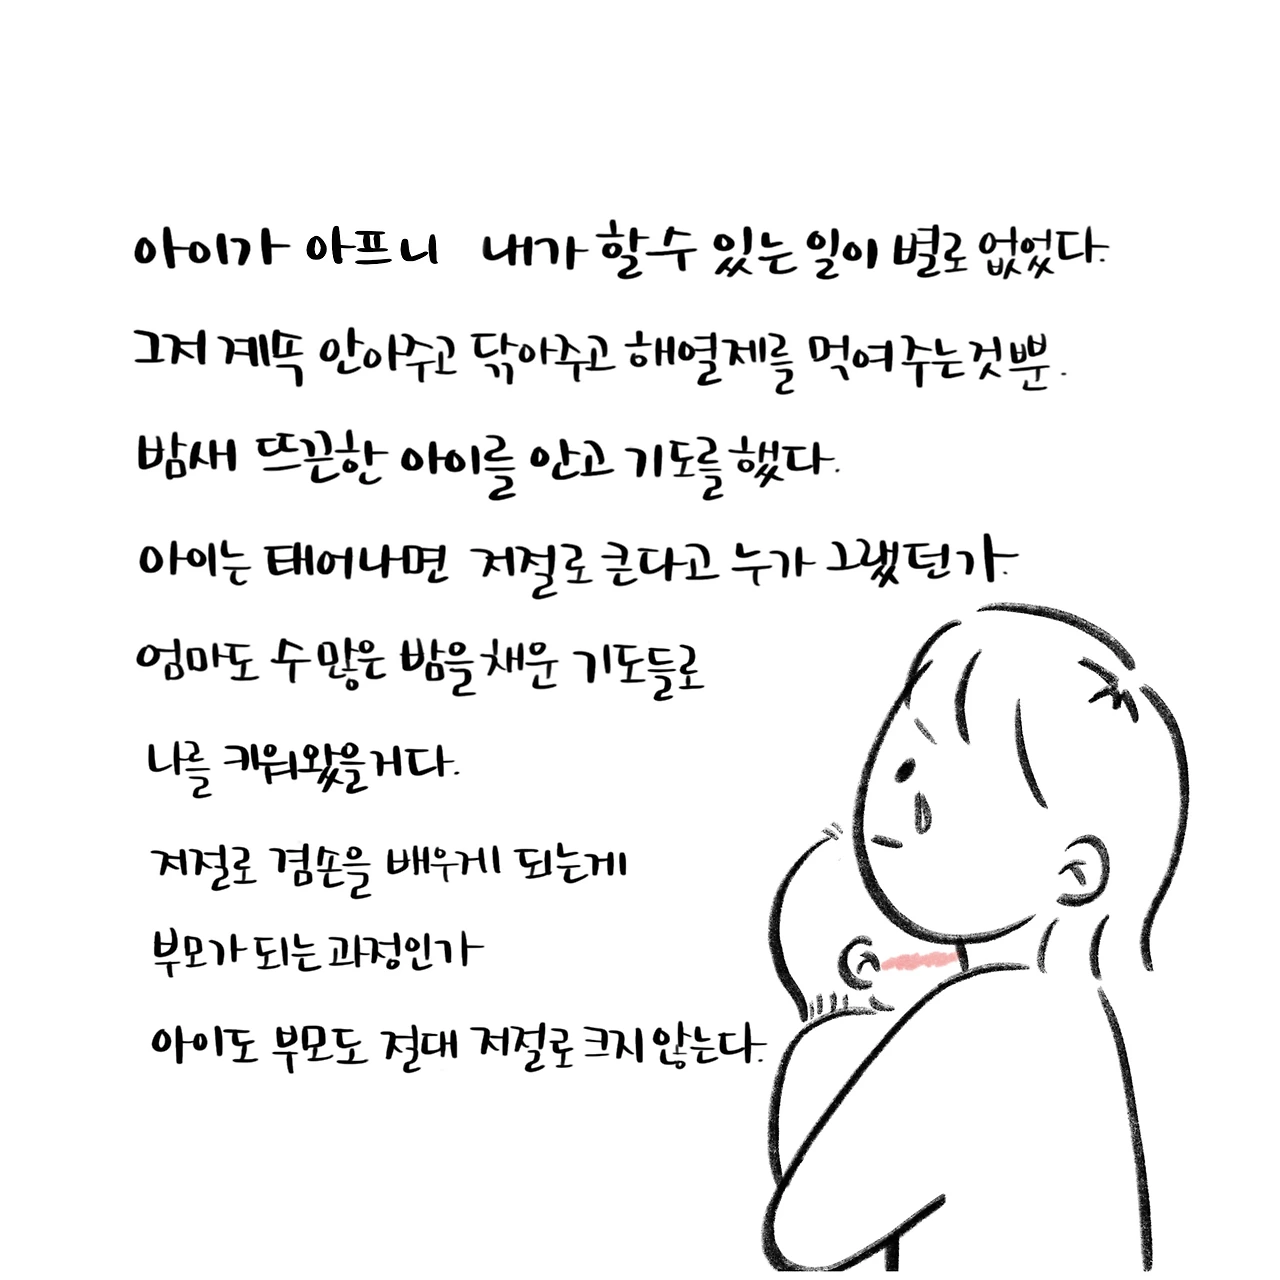 아이가 아프니 내가 할 수 있는 일이 별로 없었다.
그저 계속 안아주고 닦아주고 해열제를 먹여주는 것 뿐.
밤새 뜨끈한 아이를 안고 기도를 했다.
아이는 태어나면 저절로 큰다고 누가 그랬던가.
엄마도 수많은 밤을 채운 기도들로
나를 키워왔을거다.
저절로 겸손을 배우게 되는게
부모가 되는 과정인가
아이도 부모도 절대 저절로 크지 않는다.